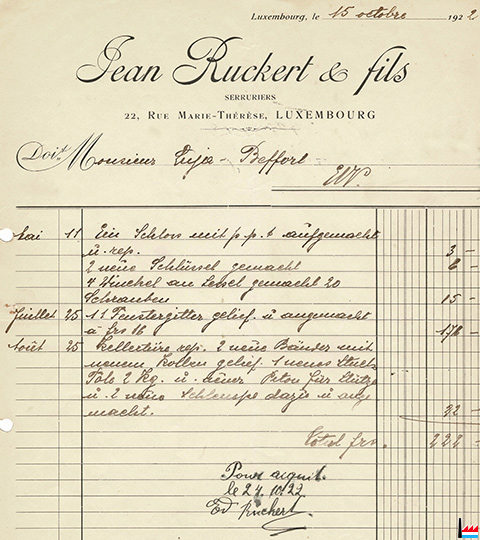 Luxembourg, le 15 octobre 1922
Jean Ruckert & fils
SERRURIERS
22, RUE MARIE-THÉRÈSE, LUXEMBOURG
Doit Monsieur Funck - Beffort
E/V.
Mai 11 Ein Schloss mit p.p.t aufgemacht
u. rep. 3 -
2 neue Schlüssel gemacht 6 -
4 Winckel an Sessel gemacht 20
Schrauben 15 -
Juillet 25 11 Fenstergitter gelief. u angemacht
a frs 16 176 -
Août 25 Kellertüre rep. 2 neue Bänder mit
neuem Kloben gelief. 1 neues Stück
Tole 2 Kg. u. einer Piton für Stütze
u. 2 neue dazu u ange
macht. 22 -
Total frs. 222 -
Pour acquit.
le 24.10.22
Ed Ruckert